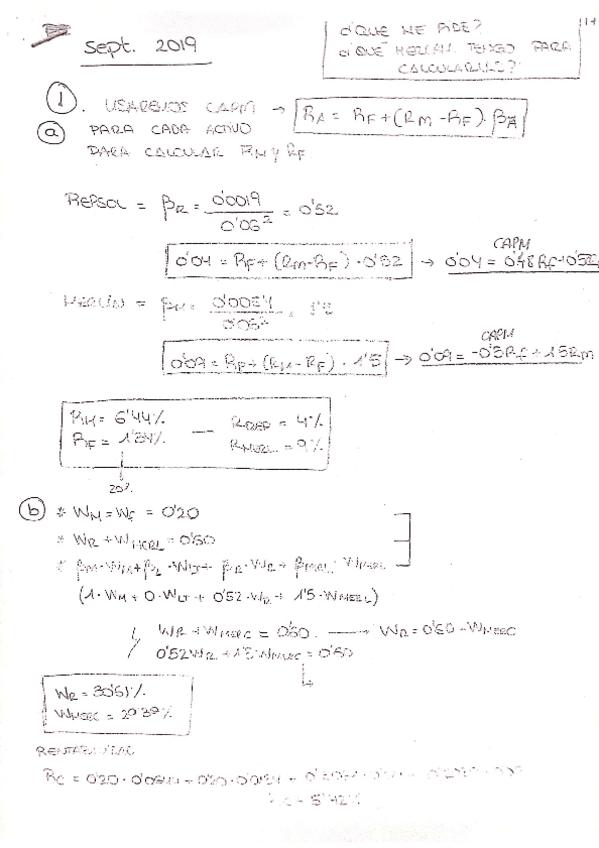 Sept. 2019
¿QUE ME PIDE?
¿QUÉ HERRAM. TENGO PARA
CALCULARLAS?
1. USAREMOS CAPM → RA = RF + (RM - RF) · βA
a PARA CADA ACTIVO
PARA CALCULAR RM Y RF
REPSOL = βR = 0'0019 / 0'06² = 0'52
0'04 = RF + (RM - RF) · 0'52 → CAPM 0'04 = 0'48RF + 0'52R
MERLÍN = βM = 0'0054 / = 1'5
0'09 = RF + (RM - RF) · 1'5 → CAPM 0'09 = -0'5RF + 1'5RM
RM = 6'44% — RREP = 4%
RF = 1'34% RMERL = 9%
20%
b * WM = WF = 0'20
* WR + WMERL = 0'60
* βM · WM + · WLT + βR · WR + βMERL · WMERL
(1 · WM + 0 · WLT + 0'52 · WR + 1'5 · WMERL)
WR + WMERC = 0'60. → WR = 0'60 - WMERC
0'52WR + 1'5 WMERC = 0'60
WR = 30'61%
WMERC = 29'39%
RENTABILIDAD
RC = 0'20 · 0'0644 + 0'20 · 0'0134 +
5'42%